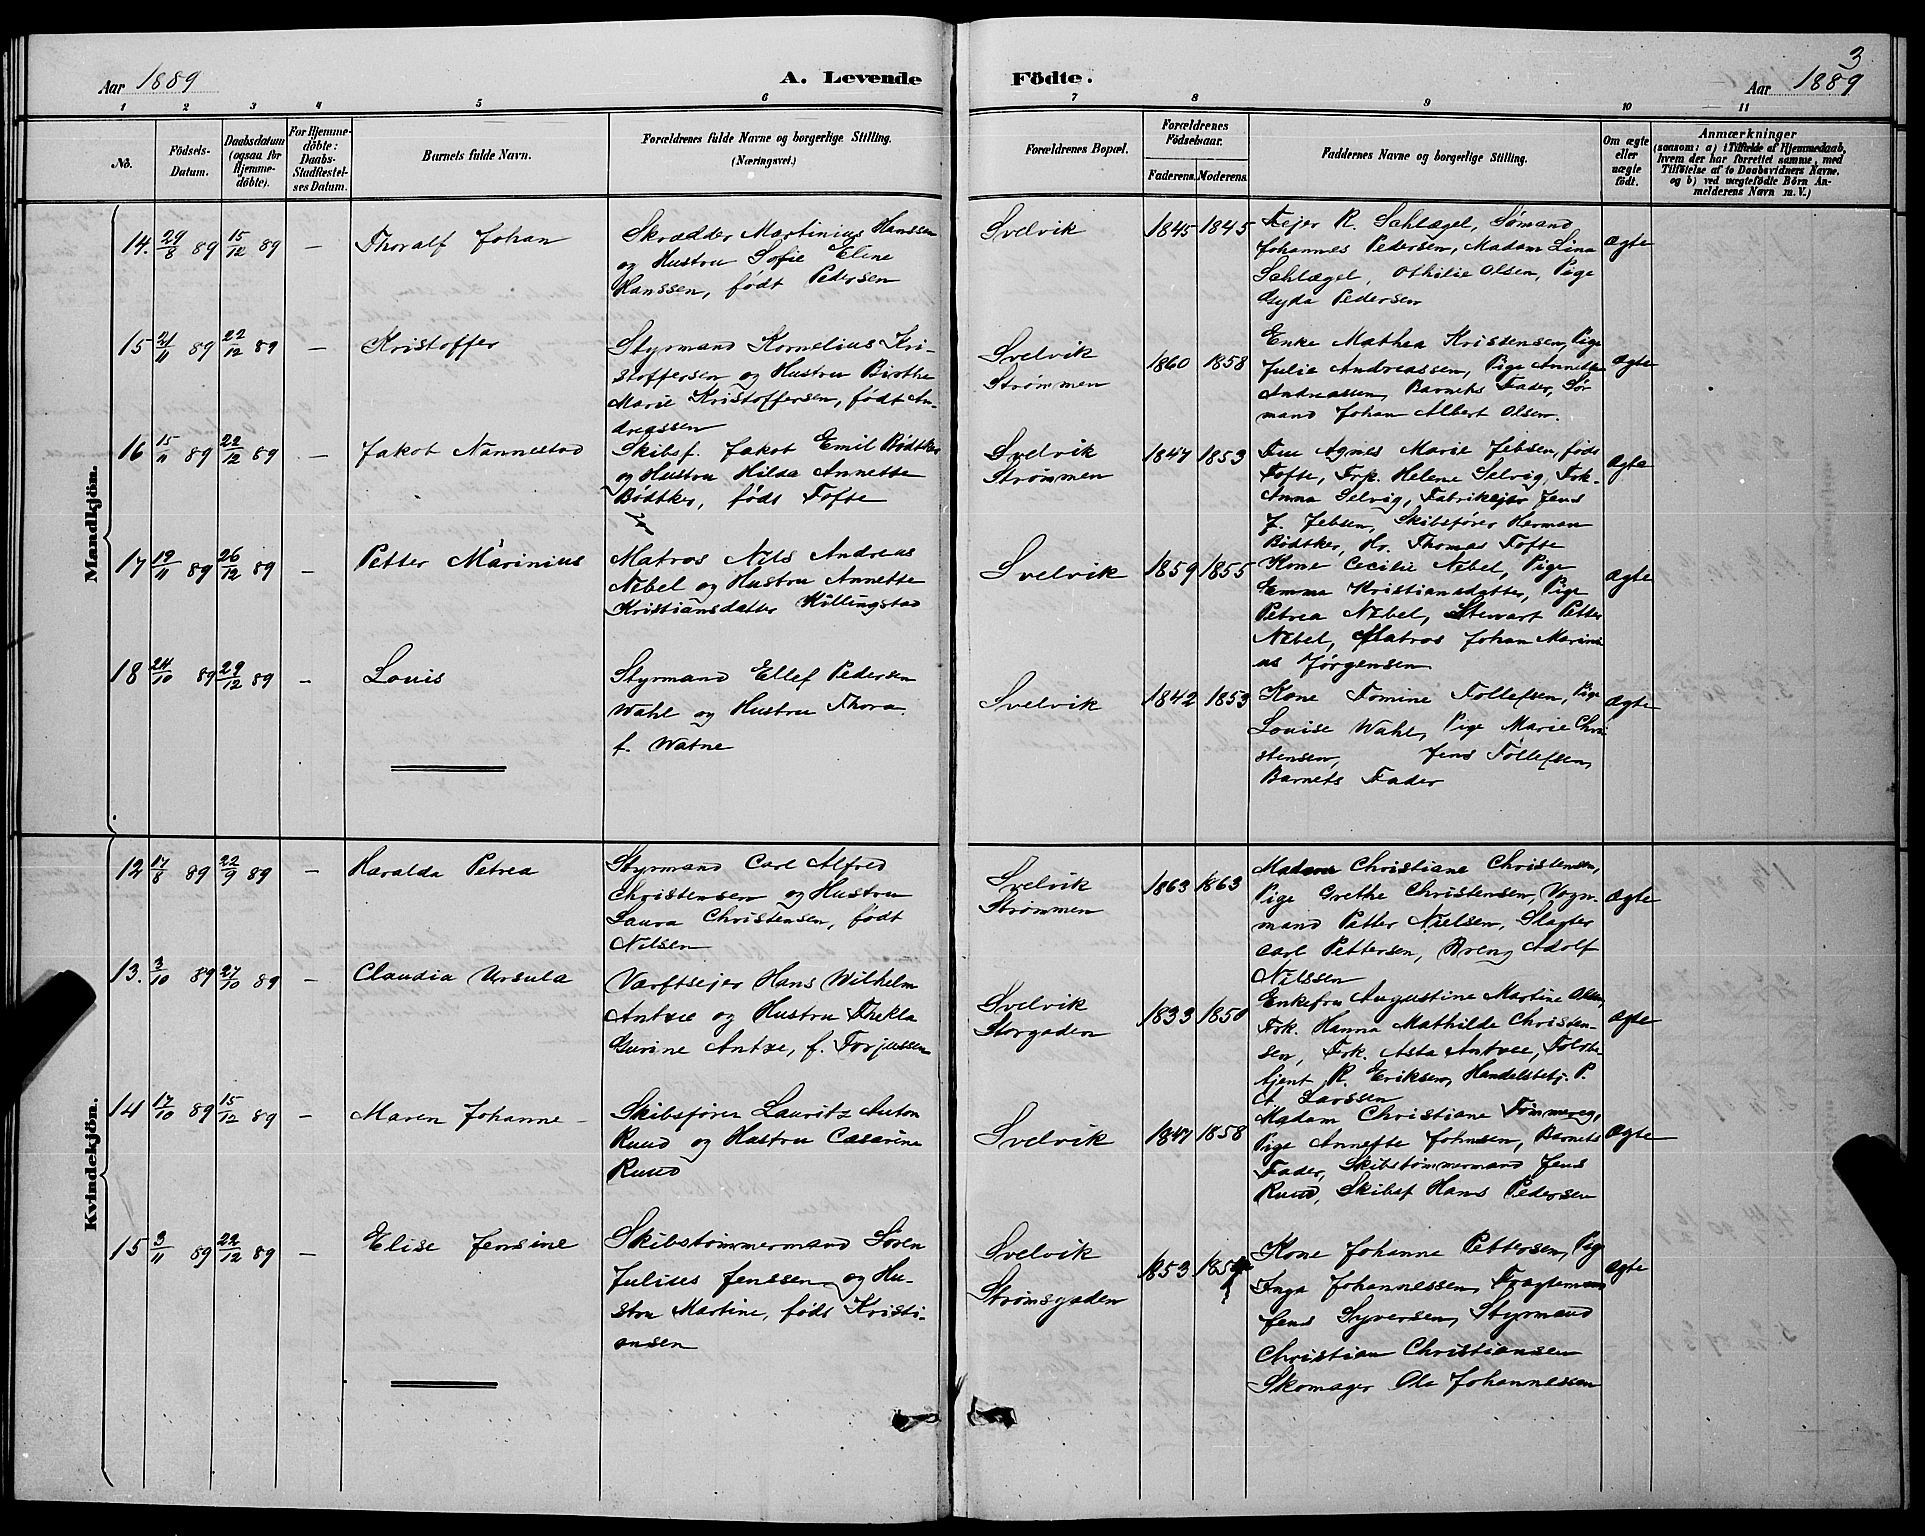 Aar 1889
A. Levende
Födte.
3
Aar 1889
1 2 3 4 5 6 7 8 9 10 11
No.
Födsels-Datum.
Daabsdatum (ogsaa for Hjemme-döbte).
For Hjemme-döbte: Daabs-Stadfæstel-ses Datum.
Barnets fulde Navn.
Forældrenes fulde Navne og borgerlige Stilling. (Næringsvei.)
Forældrenes Bopæl.
Forældrenes Födselsaar.
Faderens. Moderens.
Faddernes Navne og borgerlige Stilling.
Om ægte eller uægte födt.
Anmærkninger
(saasom: a) i Tilfælde af Hjemmedaab, hvem der har forrettet samme, med Tilföielse af to Daabsvidners Navne, og b) ved uægtefödte Börn An-melderens Navn m. V.)
Mandkjön.
14. 29/8 89 15/12 89 – Thoralf Johan
Skrædder Martinius Hanssen
og Hustru Sofie Eline
Hanssen, født Pedersen
Svelvik 1845 1845
Eier R. Schlægel, Sømand
Johannes Pedersen, Madam Lina
Schlægel, Othilie Olsen, Pige
Gyda Pedersen
Ægte
15 21/11 89 22/12 89 – Kristoffer
Styrmand Kornelius Kri-
stoffersen og Hustru Birthe
Marie Kristoffersen, født An-
dreassen
Svelvik
Strømmen
1860 1858
Enke Mathea Kristensen, Pige
Julie Andreassen, Pige Annette
Andreassen, Barnets Fader, Sø-
mand Johan Albert Olsen.
Ægte
16 15/11 89 22/12 89 – Jakob Nannestad
Skibsf. Jakob Emil Bødtker
og Hustru Hilda Annette
Bødtker, føds Tofte
Svelvik
Strømmen
1847 1853
Fru Agnes Marie Jebsen, føds
Tofte, Frk. Helene Selvig, Frk.
Anna Selvig, Fabrikeier Jens
J. Jebsen, Skibsfører Herman
Bødtker, Hr. Thomas Tofte
Ægte
17 19/11 89 26/12 89 – Petter Marinius
Matros Nils Andreas
Nebel og Hustru Annette
Kristiansdatter Killingstad
Svelvik 1859 1855
Kone Cecilie Nebel, Pige
Emma Kristiansdatter, Pige
Petrea Nebel, Stewart Petter
Nebel, Matros Johan Marini-
us Jørgensen
Ægte
18 24/10 89 29/12 89 – Louis
Styrmand Ellef Pedersen
Wahl og Hustru Thora
f. Watne
Svelvik 1842 1853
Kone Tomine Tollefsen, Pige
Louise Wahl, Pige Marie Chri
stensen, Jens Tollefsen,
Barnets Fader
Ægte
Kvindekjön.
12 17/8 89 22/9 89 – Haralda Petrea
Styrmand Carl Alfred
Christensen og Hustru
Laura Christensen, født
Nilsen
Svelvik
Strømmen
1863 1863
Madam Christiane Christensen,
Pige Grethe Christensen, Vogn-
mand Petter Nielsen, Slagter
Carl Pettersen, Dreng Adolf
Nilssen
Ægte
13. 3/10 89 27/10 89 – Claudia Ursula
Værftseier Hans Wilhelm
Antzee og Hustru Thekla
Gurine Antzee, f. Torjussen
Svelvik
Storgaden
1833 1850
Enkefru Augustine Martine Olsen,
Frk. Hanna Mathilde Christen-
sen, Frk. Asta Antzee, Toldbe-
tjent R. Eriksen, Handelsbetj. P.
A. Larssen
Ægte
14 17/10 89 15/12 89 – Maren Johanne
Skibsfører Lauritz Anton
Ruud og Hustru Cæsarine
Ruud
Svelvik 1847 1858
Madam Christiane Tømmereg,
Pige Annette Johnsen, Barnets
Fader, Skibstømmermand Jens
Ruud, Skibsf Hans Pedersen
Ægte
15 3/11 89 22/12 89 – Elise Jensine
Skibstømmermand Søren
Julius Jenssen og Hu-
stru Martine, føds Kristi-
ansen
Svelvik
Strømsgaden
1853
Kone Johanne Pettersen, Pige
Inga Johannessen, Fragtemand
Jens Syversen, Styrmand
Christian Christiansen
Skomager Ole Johannessen
Ægte